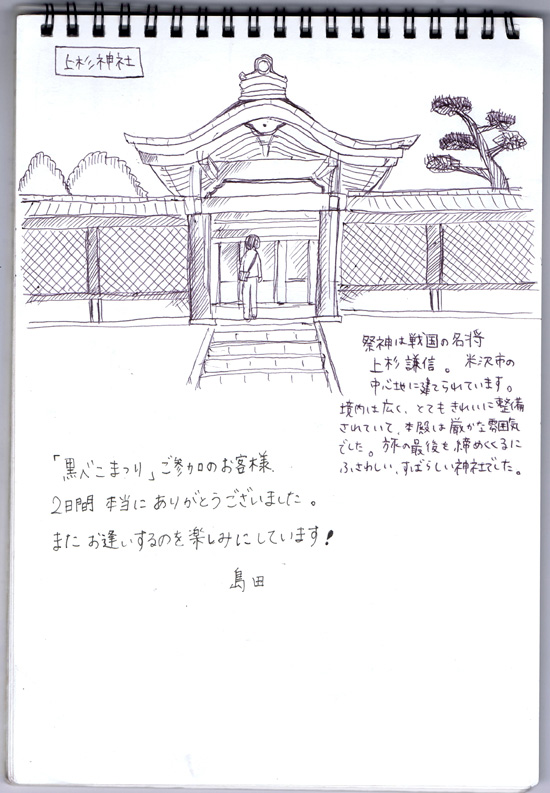 上杉神社
祭神は戦国の名将
上杉謙信。米沢市の
中心地に建てられています。
境内は広く、とてもきれいに整備
されていて、本殿は厳かな雰囲気
でした。旅の最後を締めくくるに
ふさわしい、すばらしい神社でした。
「黒べこまつり」ご参加のお客様、
2日間本当にありがとうございました。
またお逢いするのを楽しみにしています!
島田